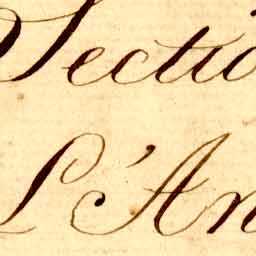 Sectio
L'An